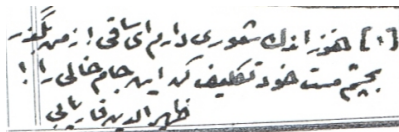 [۱] هنوز اندک شعوری دارم ای ساقی! از من بگذر
بچشم مست خود تکلیف کن این جام خالی را!
ظهیرالدین فاریابی